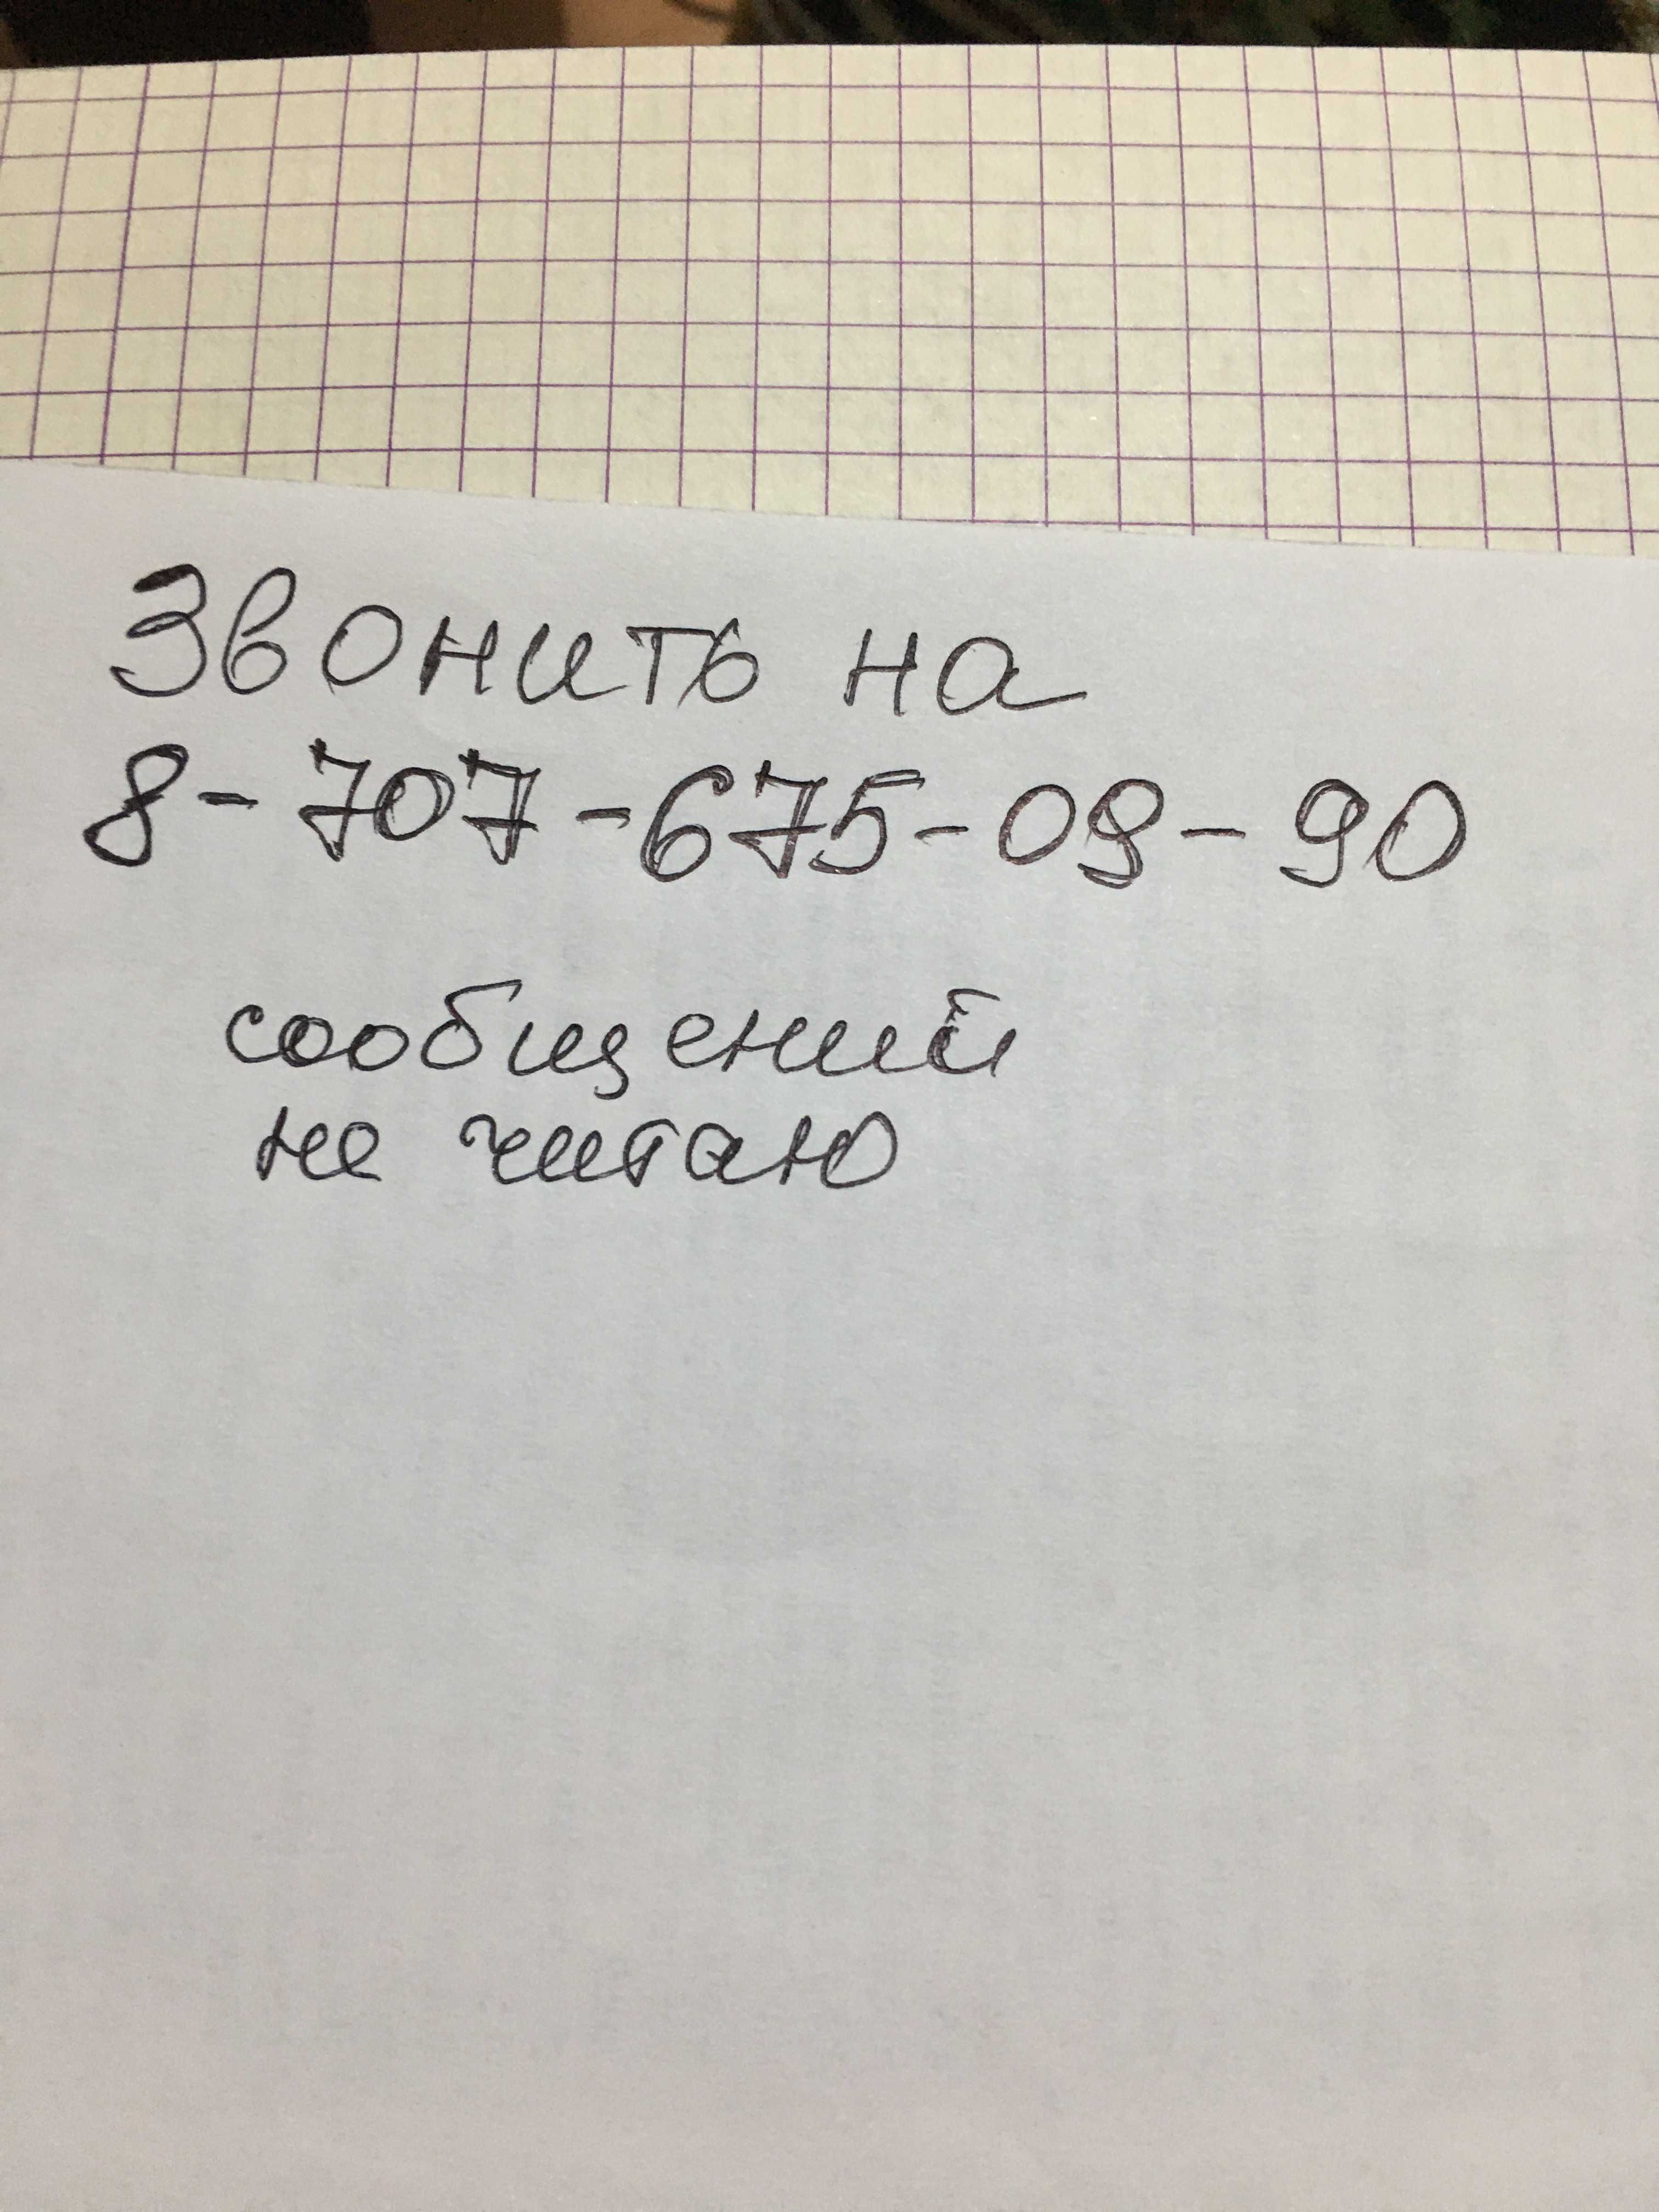 Звонить на
8-707-675-09-90
сообщений
не читаю